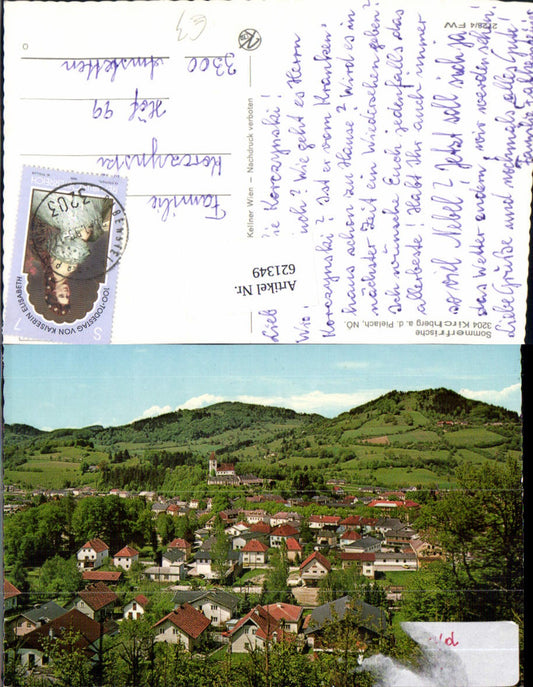 2728/4 FW
Sommerfrische
3204 Kirchberg a. d. Pielach, NÖ.
Liebe Familie Korczynski!
Wie geht es Herrn
Korczynski? Ist er vom Kranken-
haus schon zu Hause? Wird es in
nächster Zeit ein Wiedersehen geben?
Ich wünsche Euch jedenfalls das
allerbeste! Habt Ihr auch immer
so viel Nebel? Jetzt soll sich ja
das Wetter ändern, wir werden sehen!
Liebe Grüße und nochmals alles Gute!
Familie
Kellner Wien — Nachdruck verboten
Familie
Korczynski
Hof 99
3300 Amstetten
€3
100. TODESTAG VON KAISERIN ELISABETH
S 7
3203
Artikel Nr.
621349